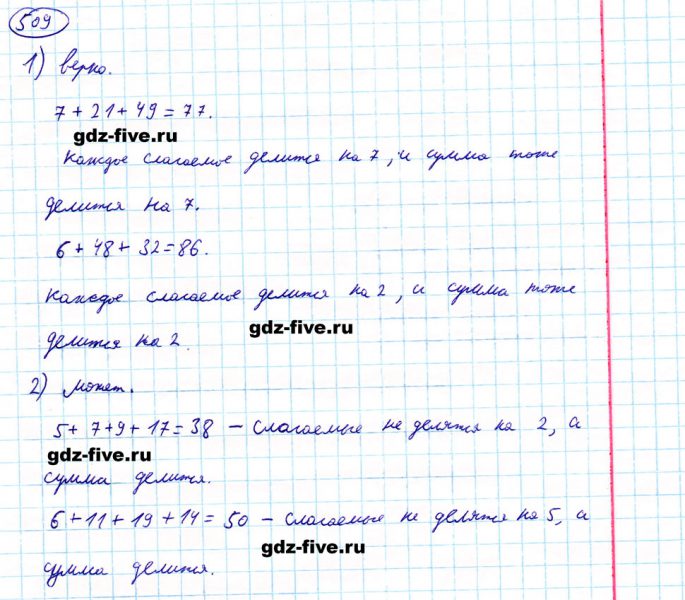 509
1) верно.
7 + 21 + 49 = 77.
gdz-five.ru
каждое слагаемое делится на 7, и сумма тоже
делится на 7.
6 + 48 + 32 = 86.
каждое слагаемое делится на 2, и сумма тоже
gdz-five.ru
делится на 2.
2) может.
5 + 7 + 9 + 17 = 38 – слагаемые не делятся на 2, а
gdz-five.ru
сумма делится.
6 + 11 + 19 + 14 = 50 – слагаемые не делятся на 5, а
gdz-five.ru
сумма делится.